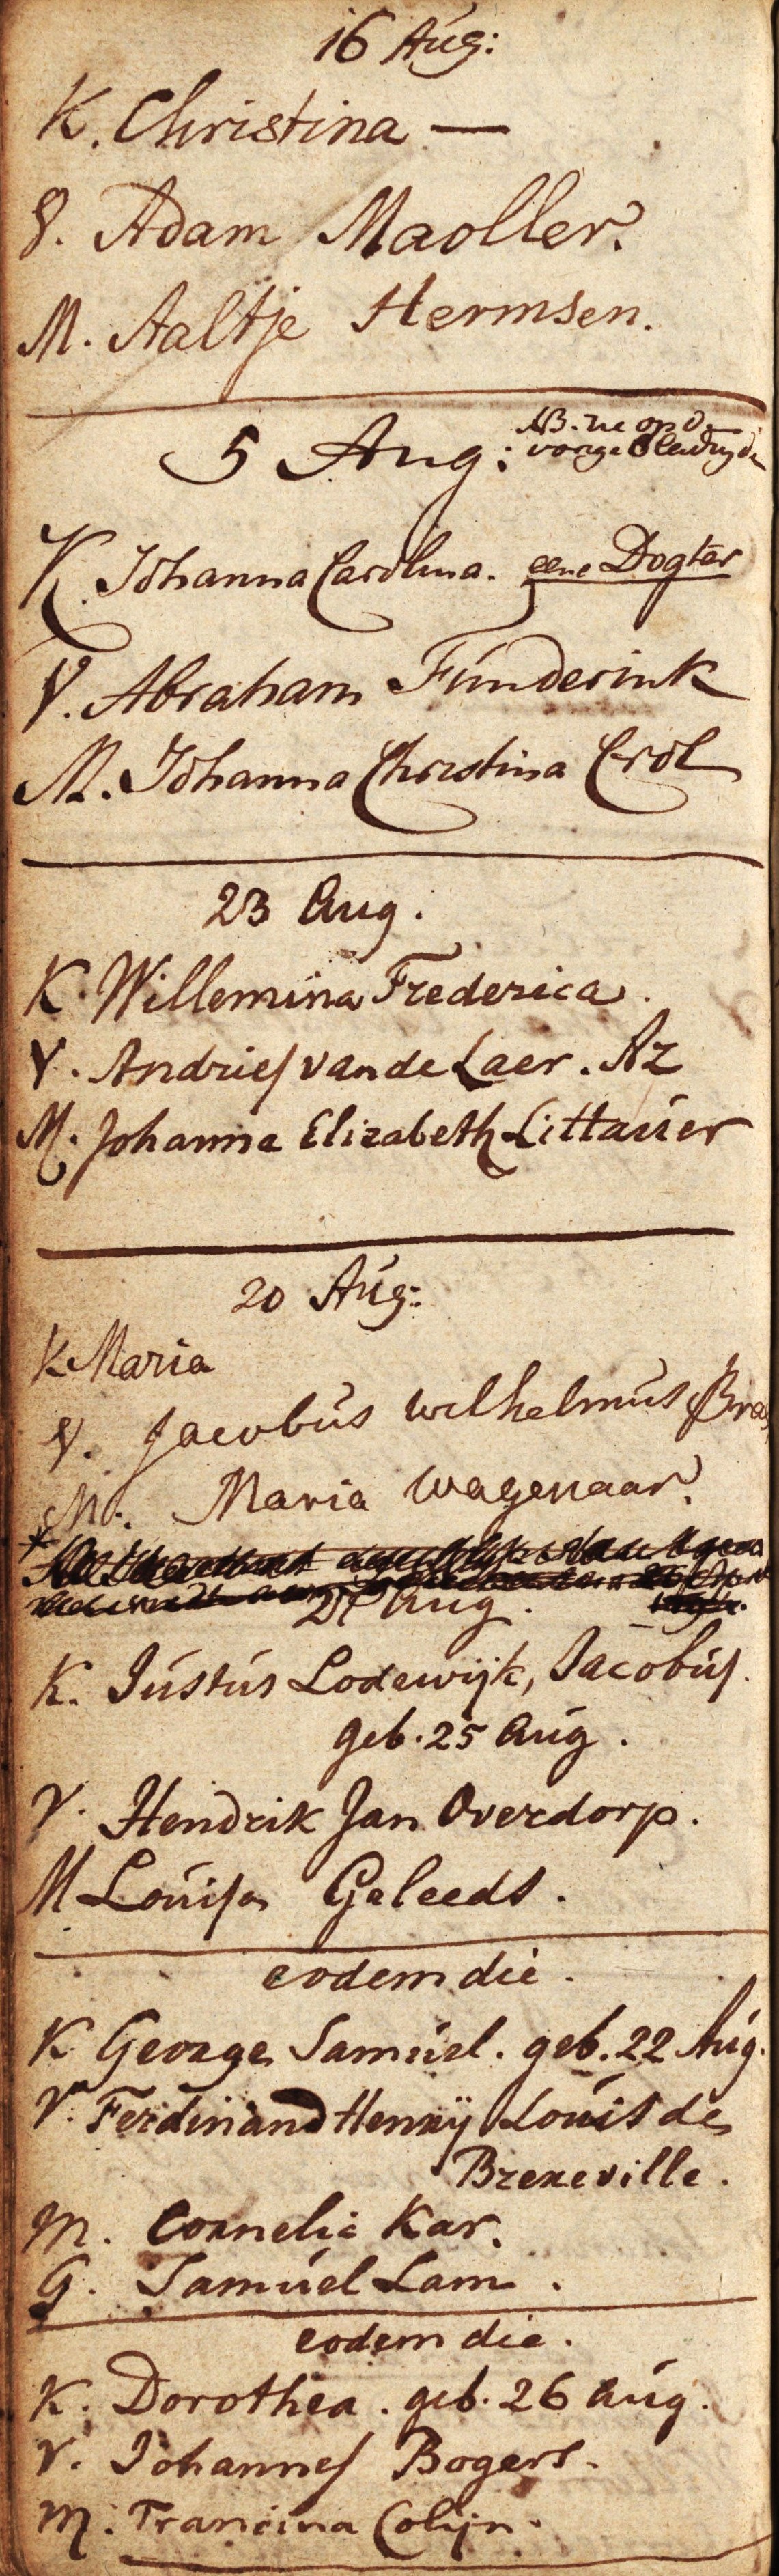 16 Aug:
K. Christina —
V. Adam Maoller.
M. Aaltje Hermsen.
NB. zie op de
5 Aug: vorige bladzyde
K. Johanna Carolina. eene Dogter
V. Abraham Funderink
M. Johanna Christina Crol
23 Aug.
K. Willemina Frederica.
V. Andries van de Laer. Az
M. Johanna Elizabeth Littauer
20 Aug:
K Maria
V. Jacobus Wilhelmus
M. Maria Wagenaar.
27 Aug.
K. Justus Lodewijk, Jacobus.
geb. 25 Aug.
V. Hendrik Jan Overdorp.
M Louisa Geleeds.
eodem die.
K George Samuel. geb. 22 Aug.
V. Ferdinand Henry Louis de
Breneville.
M. Cornelia Kar.
G. Samuel Lam.
eodem die.
K. Dorothea. geb. 26 Aug.
V. Johannes Bogers.
M. Francina Colijn.